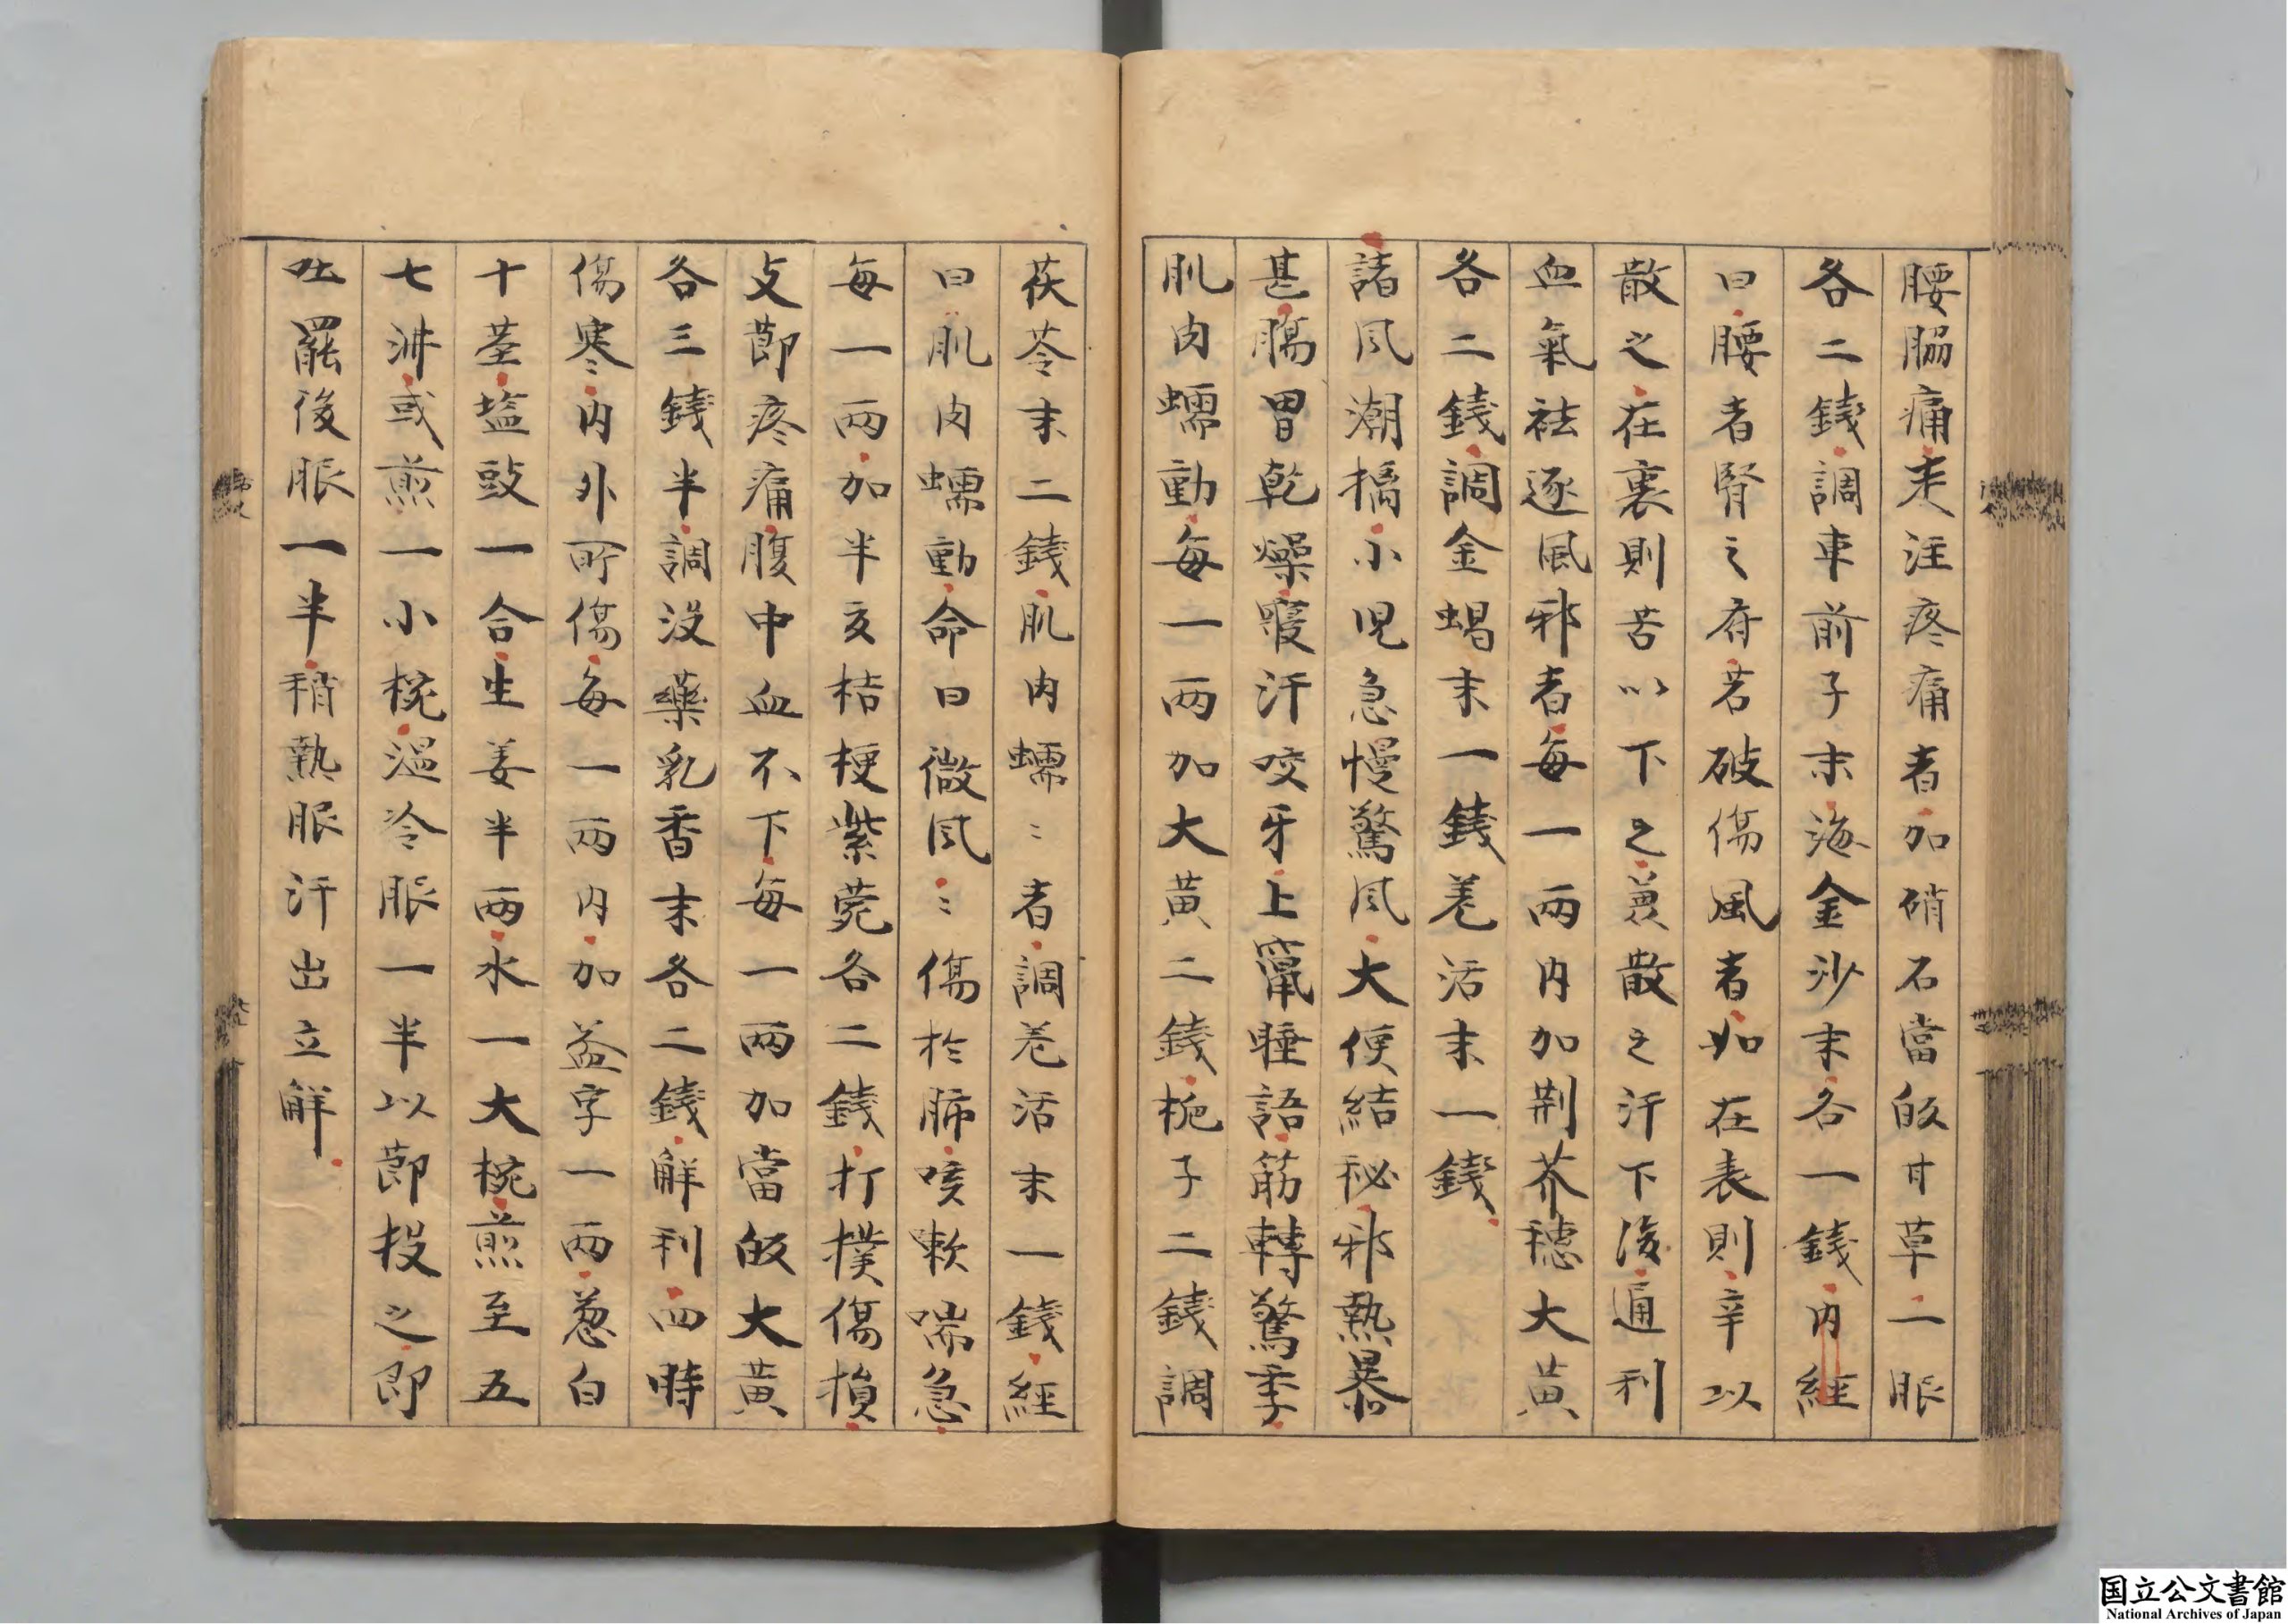 腰脇痛走注疼痛者加硝石當皈甘草一服
各二錢調車前子末海金沙末各一錢内經
曰腰者腎之府若破傷風者如在表則辛以
散之在裏則苦以下之兼散之汗下後通利
血氣袪逐風邪者每一兩内加荆芥穗大黄
各二錢調金蝎末一錢羗活末一錢
諸风潮搐小児急慢驚风大便結秘邪熱暴
甚腸胃乾燥寢汗咬牙上竄睡語筋轉驚季
肌肉蠕動每一兩加大黄二錢栀子二錢調
茯苓末二錢肌肉蠕〻者調羗活末一錢經
曰肌肉蠕動命曰微风〻傷於肺咳嗽喘急
每一兩加半夏桔梗紫菀各二錢打撲傷損
支節疼痛腹中血不下每一兩加當皈大黄
各三錢半調没藥乳香末各二錢解利四時
傷寒内外所傷每一兩内加益字一兩葱白
十莖塩豉一合生姜半兩水一大椀煎至五
七沸或煎一小椀温冷服一半以節投之即
吐罷後服一半稍熱服汗出立解
国立公文書館
National Archives of Japan